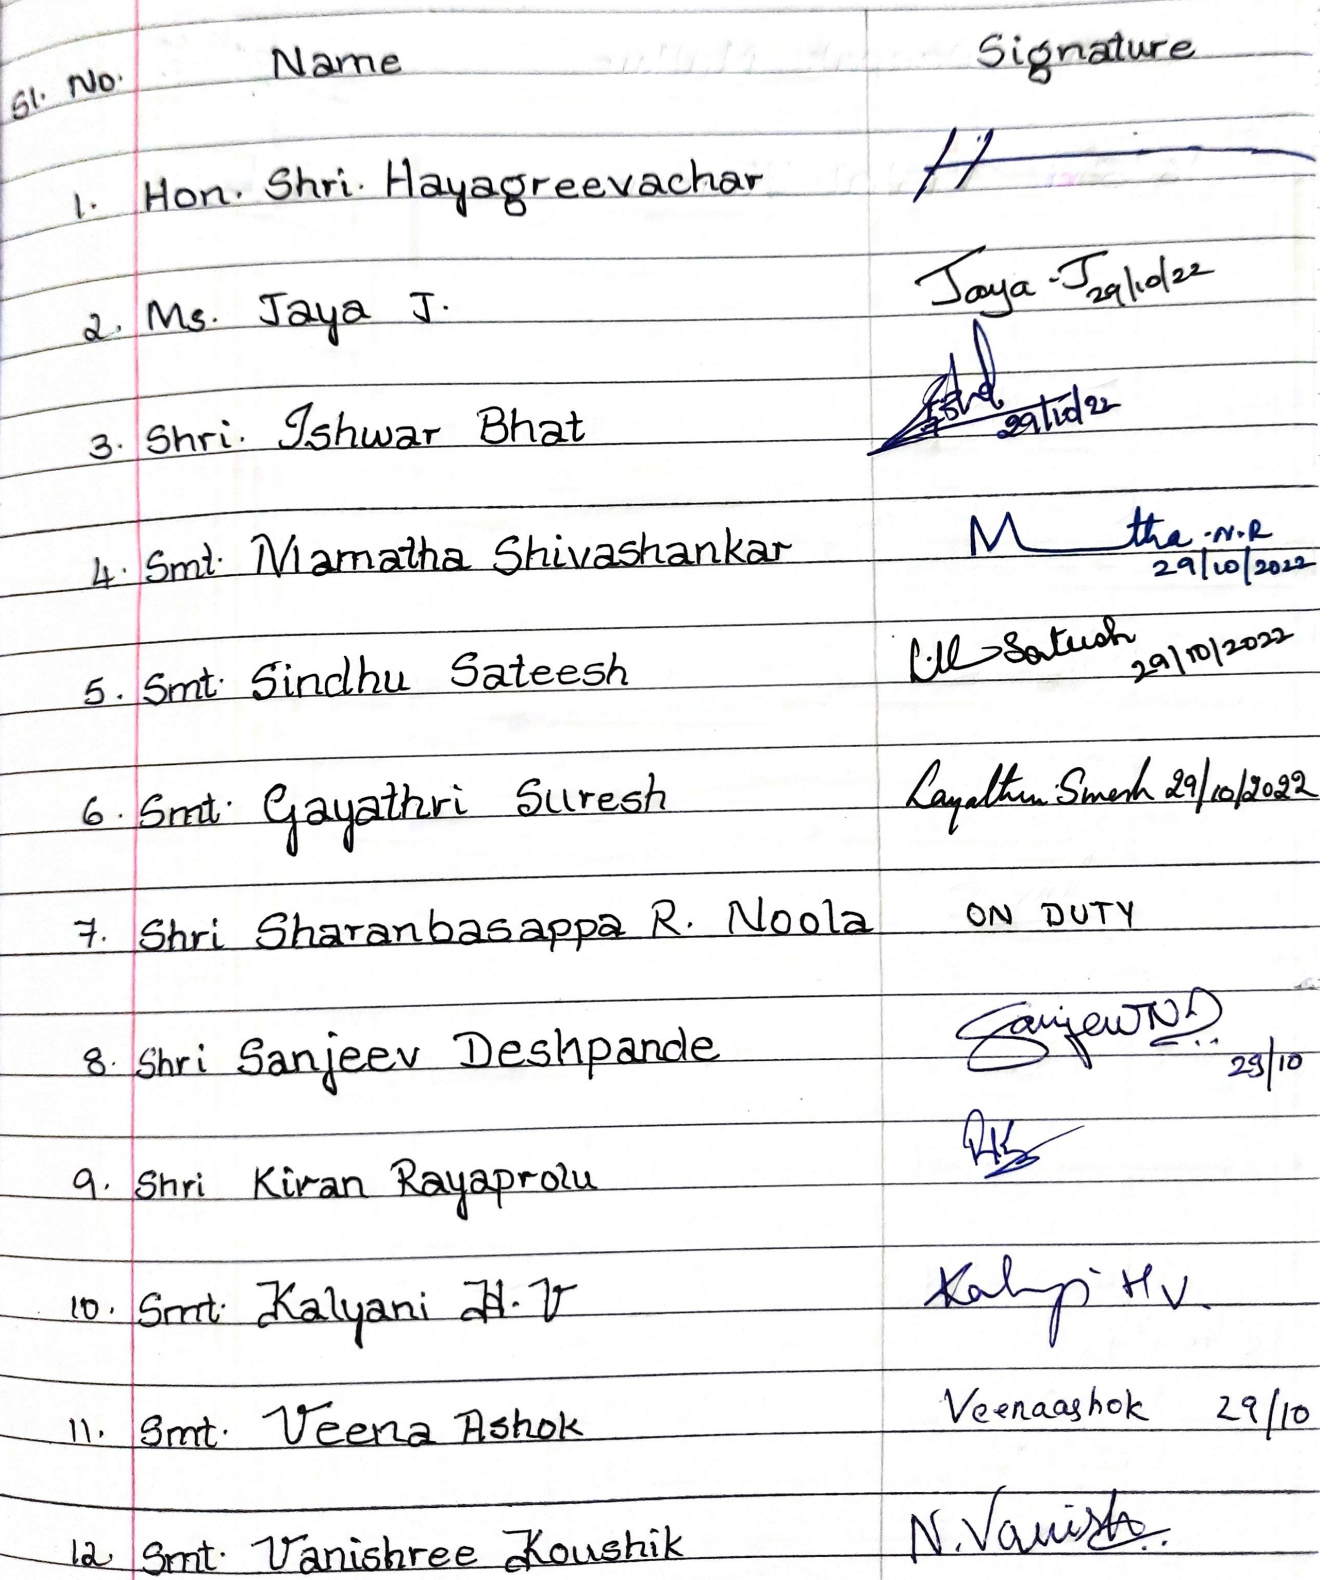 Sl. No. Name Signature
1. Hon. Shri. Hayagreevachar H
2. Ms. Jaya J. Jaya - J 29/10/22
3. Shri. Ishwar Bhat 29/10/22
4. Smt. Mamatha Shivashankar M tha .N.R
29/10/2022
5. Smt. Sindhu Sateesh Sateesh 29/10/2022
6. Smt. Gayathri Suresh Gayathri Suresh 29/10/2022
7. Shri Sharanbasappa R. Noola ON DUTY
8. Shri Sanjeev Deshpande Sanjeev ND
29/10
9. Shri Kiran Rayaprolu
10. Smt. Kalyani H.V Kalyani H V.
11. Smt. Veena Ashok Veenaashok 29/10
12 Smt. Vanishree Koushik N. Vanish